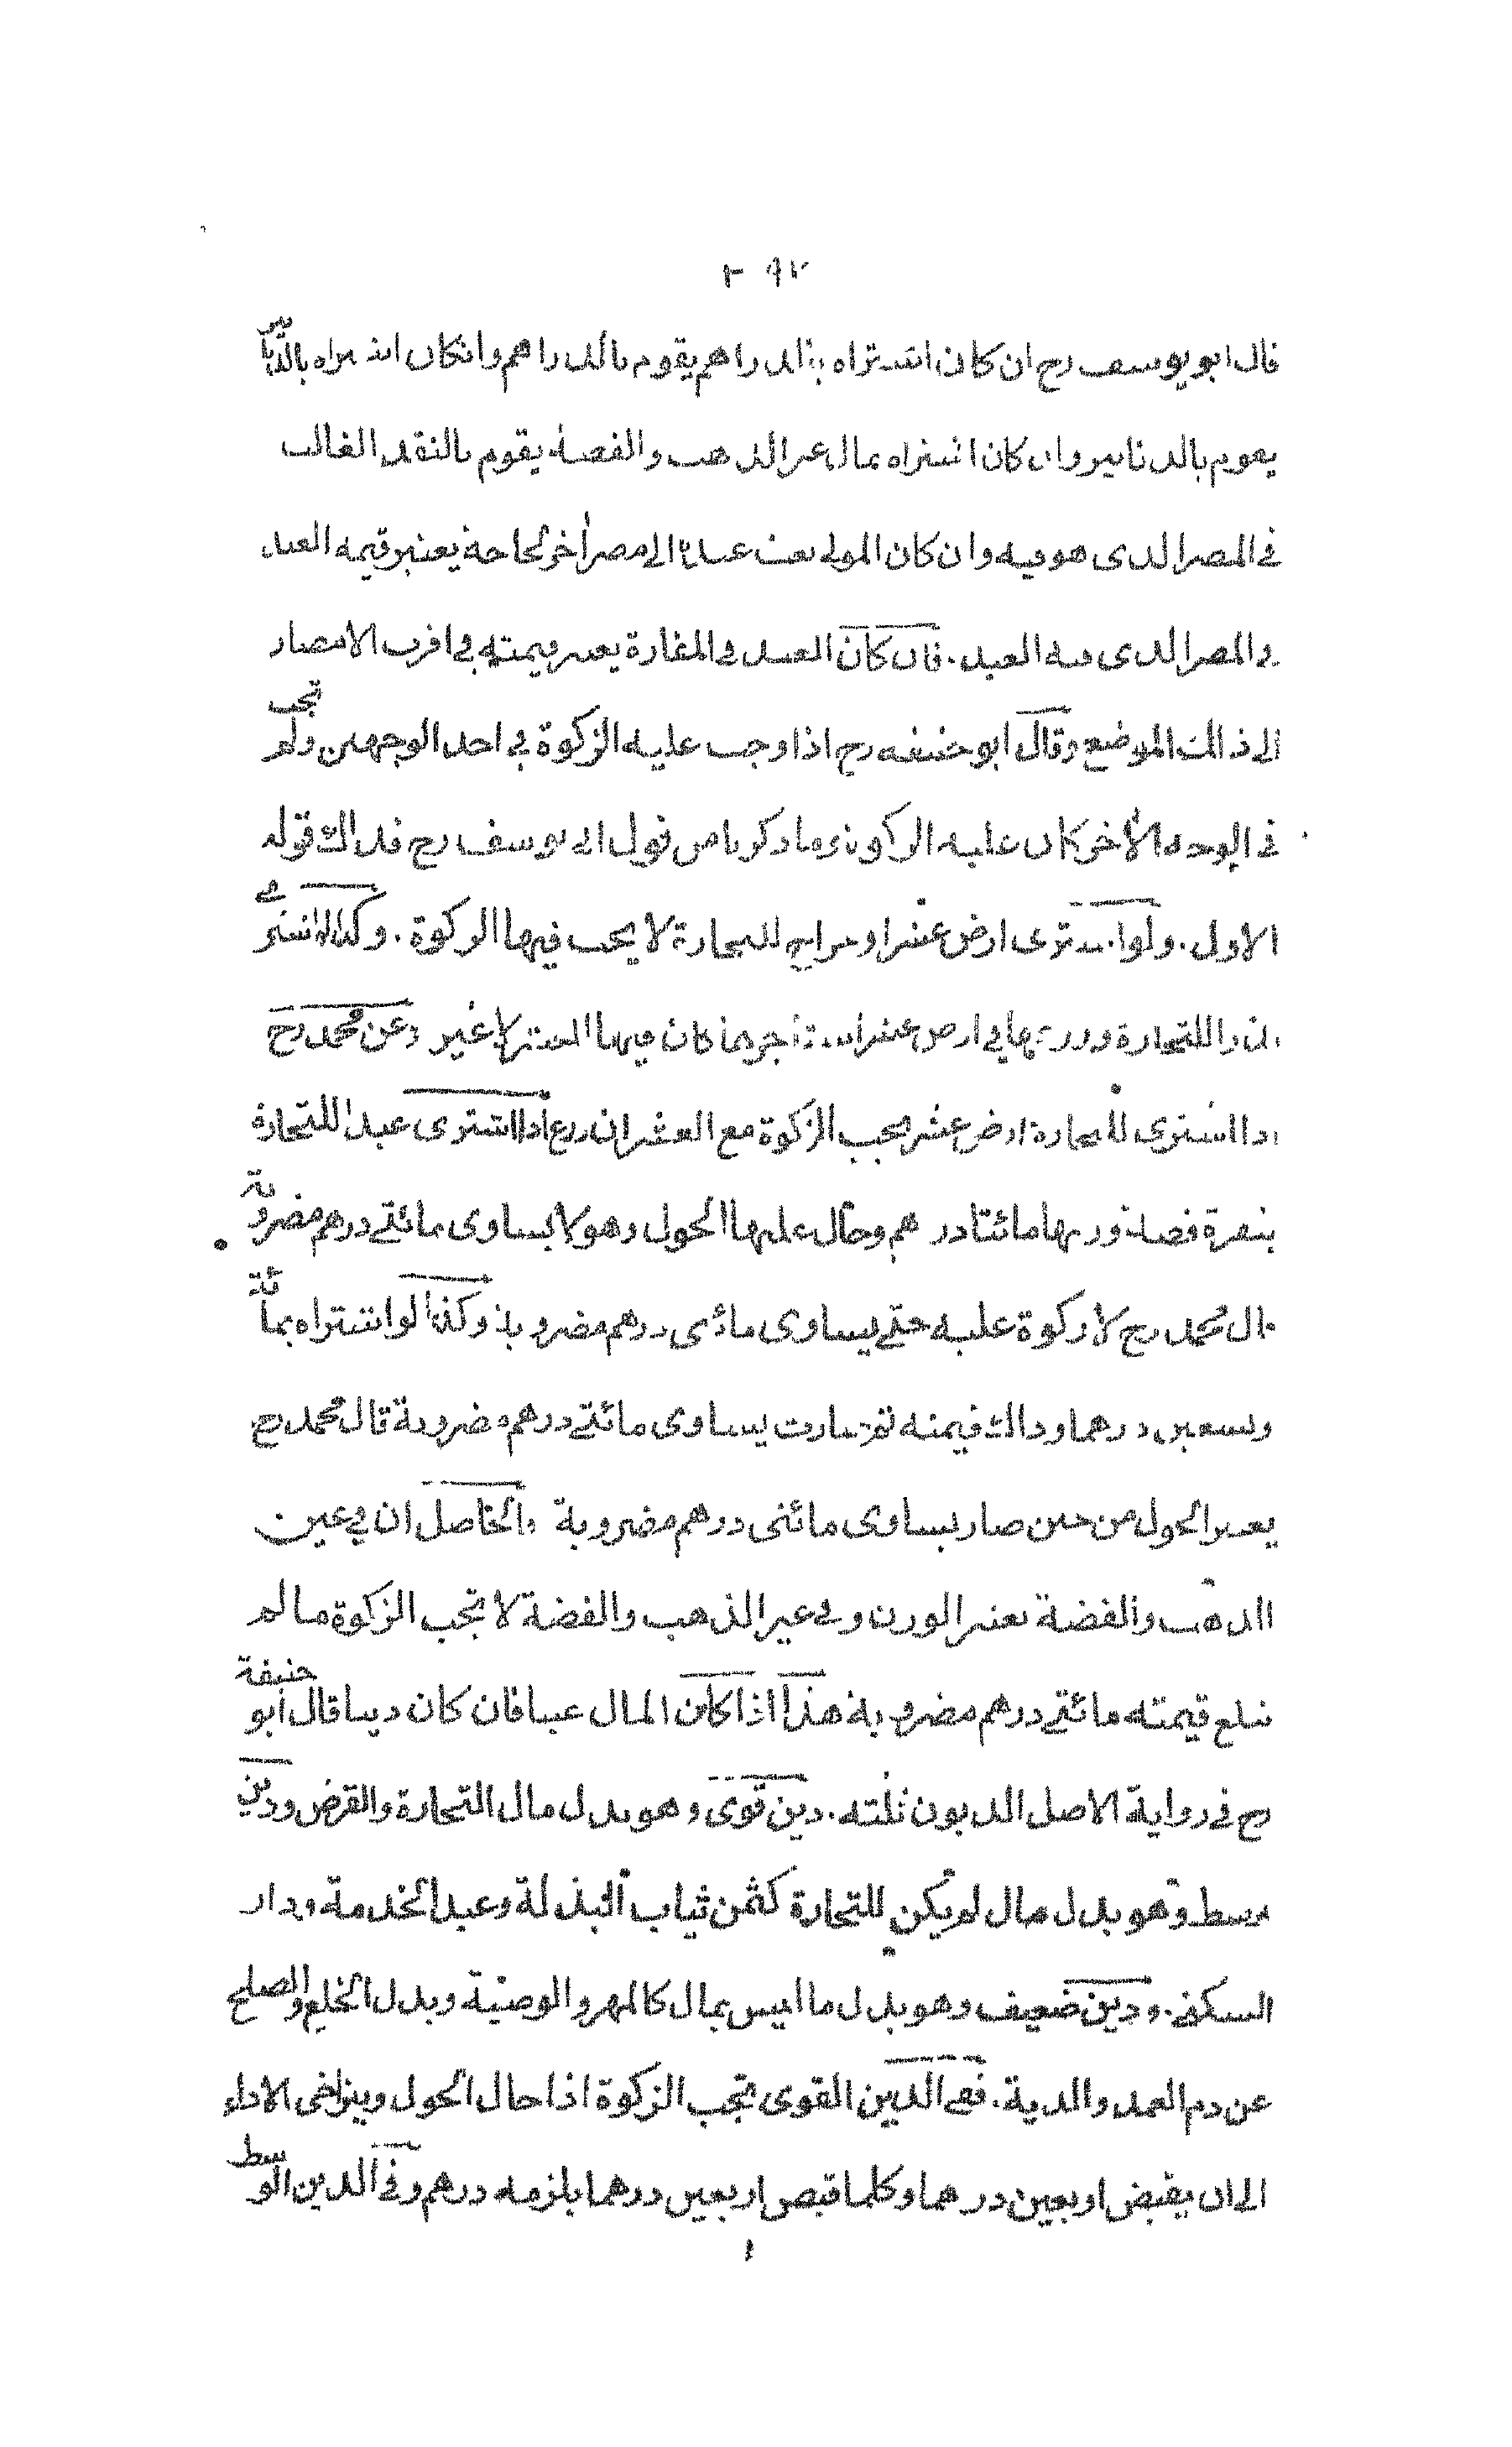 قال ابو يوسف رح ان كان اشتراه بالدراهم يقوم بالدراهم وانكان اشتراه بالدنانير
يقوم بالدنانير وان كان اشتراه بمال غير الذهب والفضة يقوم بالنقد الغالب
في المصر الذى هو فيه وان كان المولى بعث عبدا الى مصر أخر لحاجة يعتبر قيمة العبد
في المصر الذى فيه العبد. فان كان العبد في المفازة يعتبر قيمته في اقرب الامصار
الى ذالك الموضع وقال ابو حنيفة رح اذا وجب عليه الزكوة في احد الوجهين ولم تجب
في الوجه الأخر كان عليه الزكوة وما ذكرنا من قول ابى يوسف رح فذالك قوله
الاول. ولو اشترى ارض عشر او خراج للتجارة لا يجب فيها الزكوة. وكذا لو اشترى
بذرا للتجارة وزرعها في ارض عشر استأجرها كان فيها العشر لا غير وعن محمد رح
اذا اشترى للتجارة ارض عشر يجب الزكوة مع العشر ان زرع اذا اشترى عبدا للتجارة
بنقرة فضة وزنها مائتا درهم وحال عليها الحول وهو لا يساوى مائتے درهم مضروبة
قال محمد رح لا زكوة عليه حتے يساوى مائتى درهم مضروبة وكذا لو اشتراه بمائة
وتسعين درهما وذالك قيمته ثم صارت يساوى مائتے درهم مضروبة قال محمد رح
يعتبر الحول من حين صار يساوى مائتى درهم مضروبة والحاصل ان في عين
الذهب والفضة يعتبر الوزن وفى غير الذهب والفضة لا تجب الزكوة ما لم
تبلغ قيمته مائتے درهم مضروبة هذا اذا كان المال عينا فان كان دينا قال ابو حنيفة
رح في رواية الاصل الديون ثلثة. دين قوى وهو بدل مال التجارة والقرض ودين
وسط وهو بدل مال لم يكن للتجارة كثمن ثياب البذلة وعبد الخدمة ودار
السكنى. ودين ضعيف وهو بدل ما ليس بمال كالمهر والوصية وبدل الخلع والصلح
عن دم العمد والدية. ففى الدين القوى تجب الزكوة اذا حال الحول ويتراخى الاداء
الى ان يقبض اربعين درهما وكلما قبض اربعين درهما يلزمه درهم وفى الدين الوسط